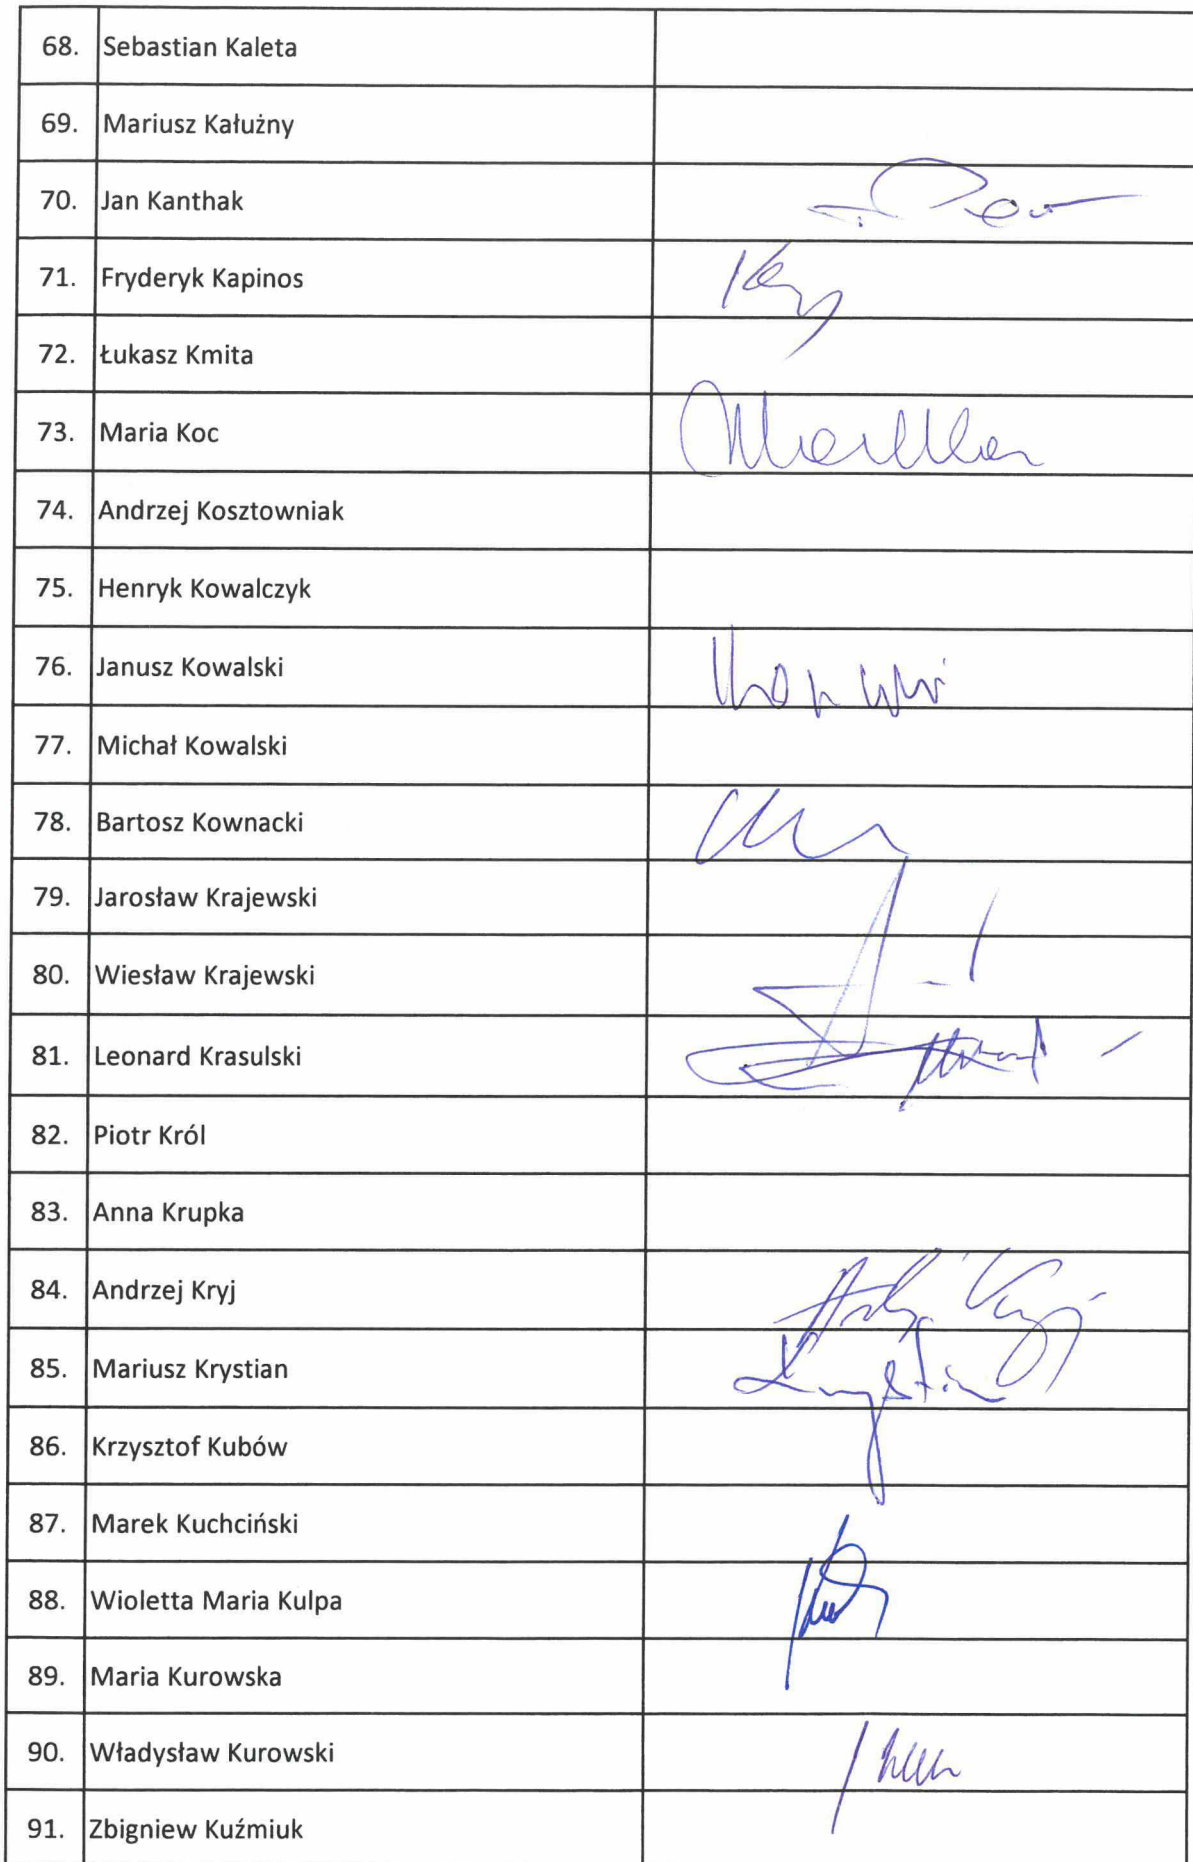 68. Sebastian Kaleta
69. Mariusz Kałużny
70. Jan Kanthak
71. Fryderyk Kapinos
72. Łukasz Kmita
73. Maria Koc
74. Andrzej Kosztowniak
75. Henryk Kowalczyk
76. Janusz Kowalski
77. Michał Kowalski
78. Bartosz Kownacki
79. Jarosław Krajewski
80. Wiesław Krajewski
81. Leonard Krasulski
82. Piotr Król
83. Anna Krupka
84. Andrzej Kryj
85. Mariusz Krystian
86. Krzysztof Kubów
87. Marek Kuchciński
88. Wioletta Maria Kulpa
89. Maria Kurowska
90. Władysław Kurowski
91. Zbigniew Kuźmiuk